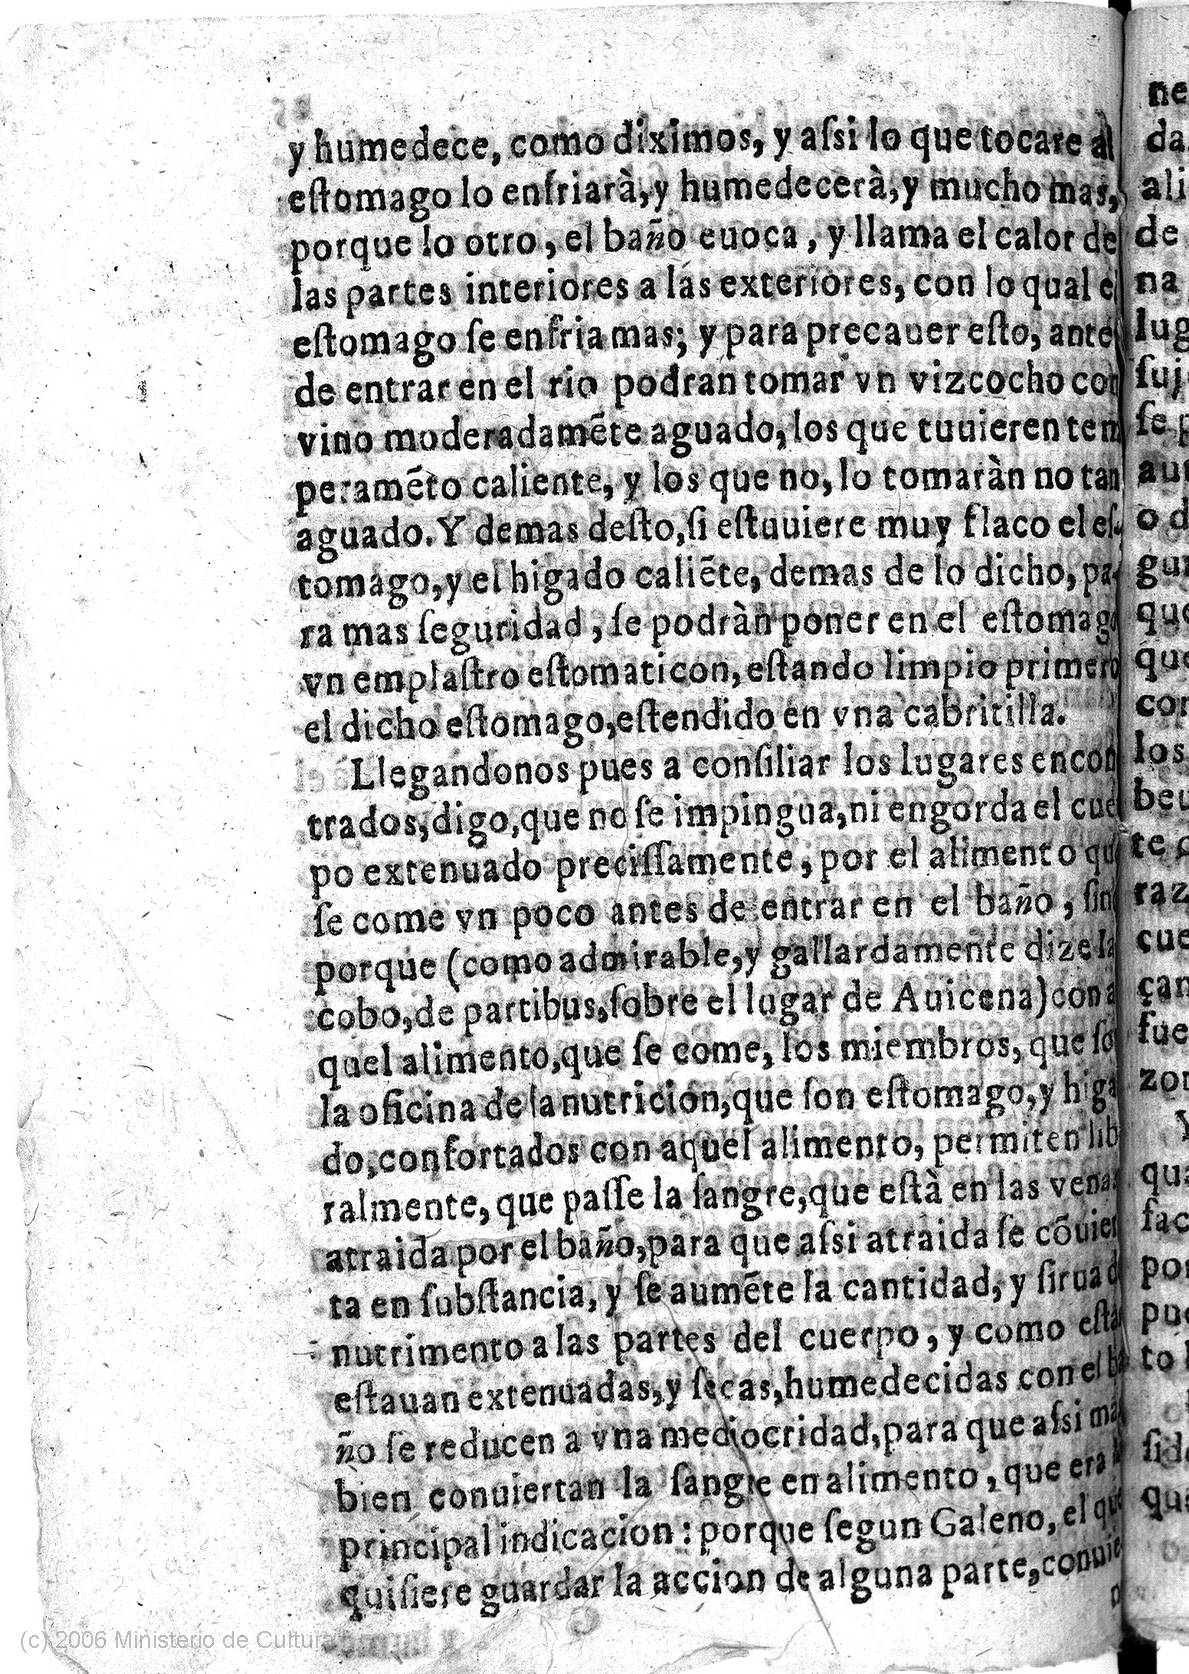 y humedece, como diximos, y aſsi lo que tocare al
eſtomago lo enfriarà, y humedecerà, y mucho mas,
porque lo otro, el baño euoca, y llama el calor de
las partes interiores a las exteriores, con lo qual el
eſtomago ſe enfria mas; y para precauer eſto, ante
de entrar en el rio podran tomar vn vizcocho con
vino moderadamẽte aguado, los que tuuieren tem
peramẽto caliente, y los que no, lo tomaràn no tan
aguado. Y demas deſto, ſi eſtuuiere muy flaco el eſ-
tomago, y el higado caliẽte, demas de lo dicho, pa-
ra mas ſeguridad, ſe podràn poner en el eſtomago
vn emplaſtro eſtomaticon, eſtando limpio primero
el dicho eſtomago, eſtendido en vna cabritilla.
Llegandonos pues a conſiliar los lugares encon
trados, digo, que no ſe impingua, ni engorda el cuer
po extenuado preciſſamente, por el alimento que
ſe come vn poco antes de entrar en el baño, ſino
porque (como admirable, y gallardamente dize Ia
cobo, de partibus, ſobre el lugar de Auicena) con a
quel alimento, que ſe come, los miembros, que ſo
la oficina de la nutricion, que ſon eſtomago, y higa
do, confortados con aquel alimento, permiten lib
ralmente, que paſſe la ſangre, que eſtà en las venas
atraida por el baño, para que aſsi atraida ſe cõuier
ta en ſubſtancia, y ſe aumẽte la cantidad, y ſirua d
nutrimento a las partes del cuerpo, y como eſta
eſtauan extenuadas, y ſecas, humedecidas con el ba
ño ſe reducen a vna mediocridad, para que aſsi ma
bien conuiertan la ſangre en alimento, que era l
principal indicacion: porque ſegun Galeno, el que
quiſiere guardar la accion de alguna parte, conuie
ne
da
ali
de
na
lug
ſuj
ſe p
au
o d
gu
que
que
con
los
beu
te
raz
cue
çan
fue
zon
Y
qua
fac
por
pue
to
ſid
qua
(c) 2006 Ministerio de Cultura